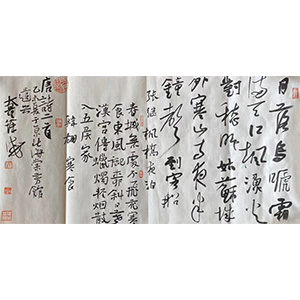 月落烏啼霜
滿天江楓漁火
對愁眠姑蘇城
外寒山寺夜半
鐘聲到客船
張繼楓橋夜泊
春城無處不飛花寒
食東風御柳斜日暮
漢宮傳蠟燭輕烟散
入五侯家
韓翃寒食
唐詩二首